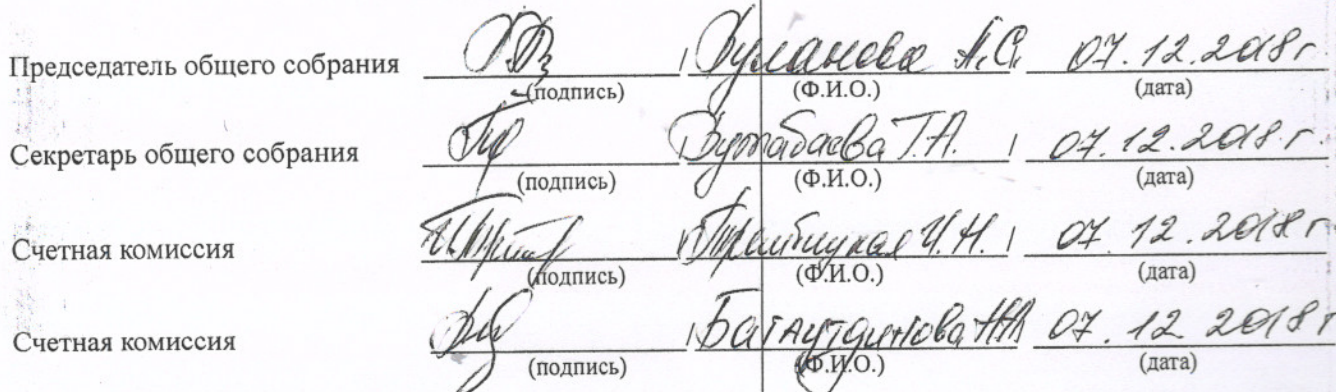 Председатель общего собрания А.С. 07.12.2018 г.
(подпись) (Ф.И.О.) (дата)
Секретарь общего собрания Т.А. 07.12.2018 г.
(подпись) (Ф.И.О.) (дата)
Счетная комиссия 07.12.2018 г
(подпись) (Ф.И.О.) (дата)
Счетная комиссия 07.12 2018 г
(подпись) (Ф.И.О.) (дата)